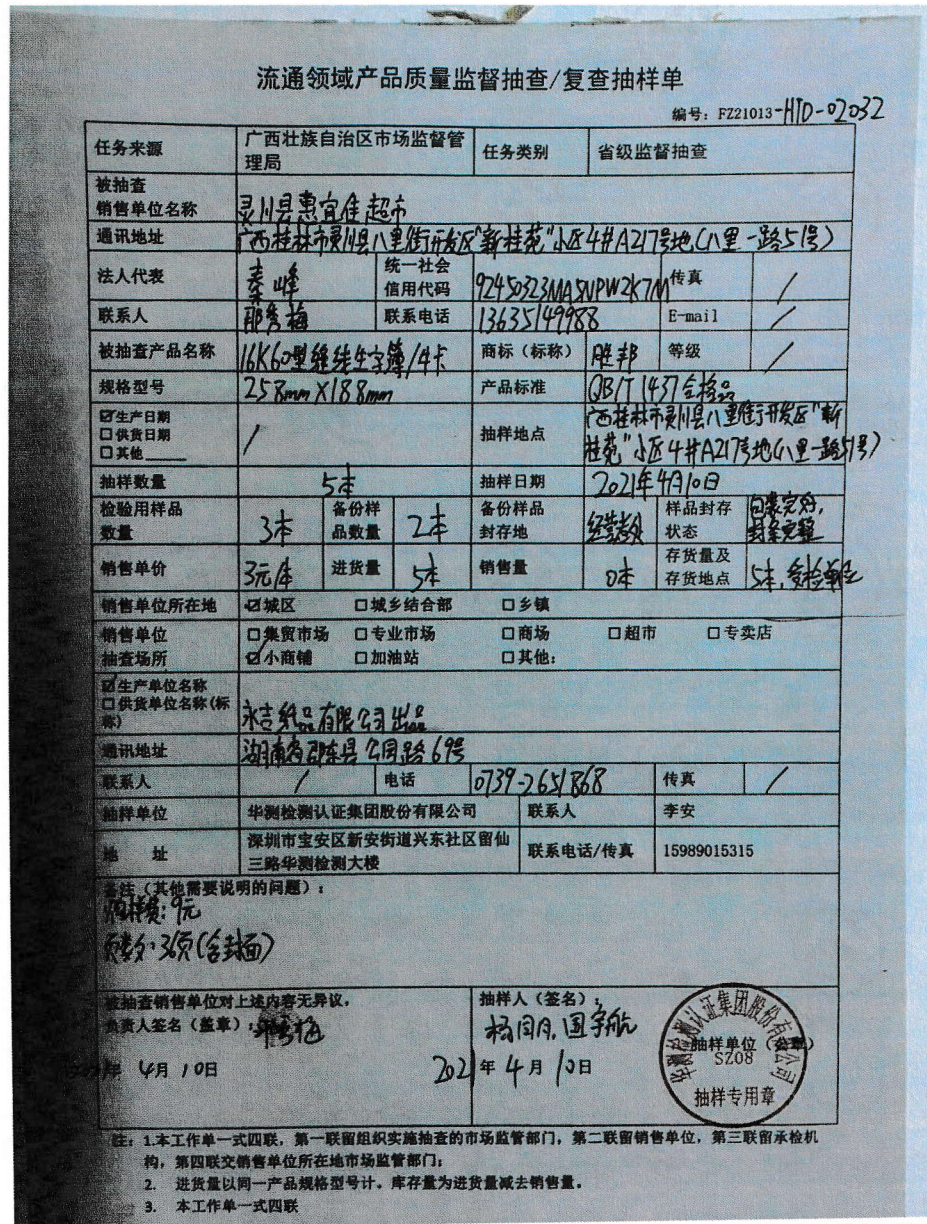 流通领域产品质量监督抽查/复查抽样单
编号: FZ21013-HTD-02032
任务来源 广西壮族自治区市场监督管理局 任务类别 省级监督抽查
被抽查销售单位名称 灵川县惠宜佳超市
通讯地址 广西桂林市灵川县八里街开发区"新桂苑"小区4#A217号地(八里一路51号)
法人代表 秦峰 统一社会信用代码 92450323MA5NPW2K7M 传真 /
联系人 秀梅 联系电话 13635149988 E-mail /
被抽查产品名称 16K60型维线生字簿/4卡 商标(标称) 胜邦 等级 /
规格型号 258mm×188mm 产品标准 QB/T 1437 合格品
☑生产日期
☐供货日期
☐其他____ / 抽样地点 广西桂林市灵川县八里街开发区"新桂苑"小区4#A217号地(八里一路51号)
抽样数量 5本 抽样日期 2021年4月10日
检验用样品数量 3本 备份样品数量 2本 备份样品封存地 经营者处 样品封存状态 包装完好,封条完整
销售单价 3元/本 进货量 5本 销售量 0本 存货量及存货地点 5本,受检单位
销售单位所在地 ☑城区 ☐城乡结合部 ☐乡镇
销售单位抽查场所 ☐集贸市场 ☐专业市场 ☐商场 ☐超市 ☐专卖店
☑小商铺 ☐加油站 ☐其他:
☑生产单位名称
☐供货单位名称(标称) 永吉纸品有限公司出品
通讯地址 湖南省邵东县公园路69号
联系人 / 电话 0739-2651868 传真 /
抽样单位 华测检测认证集团股份有限公司 联系人 李安
地 址 深圳市宝安区新安街道兴东社区留仙三路华测检测大楼 联系电话/传真 15989015315
备注(其他需要说明的问题):
购样费:9元
页数:36页(含封面)
被抽查销售单位对上述内容无异议。
负责人签名(盖章):秀梅
年 4月10日
抽样人(签名):
杨同月,国宇航
抽样单位(公章)
2021年4月10日
华测检测认证集团股份有限公司
SZ08
抽样专用章
注: 1.本工作单一式四联,第一联留组织实施抽查的市场监管部门,第二联留销售单位,第三联留承检机
构,第四联交销售单位所在地市场监管部门;
2. 进货量以同一产品规格型号计。库存量为进货量减去销售量。
3. 本工作单一式四联